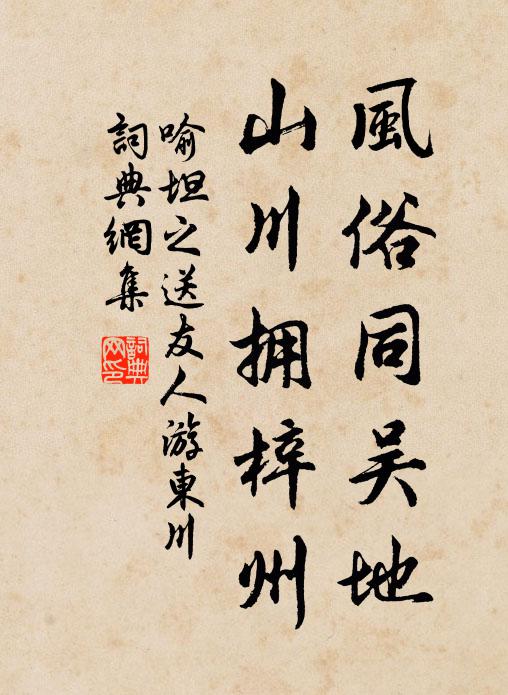 風俗同吴地
山川拥梓州
喻坦之送友人游東川
詞典網集
詞典
网印